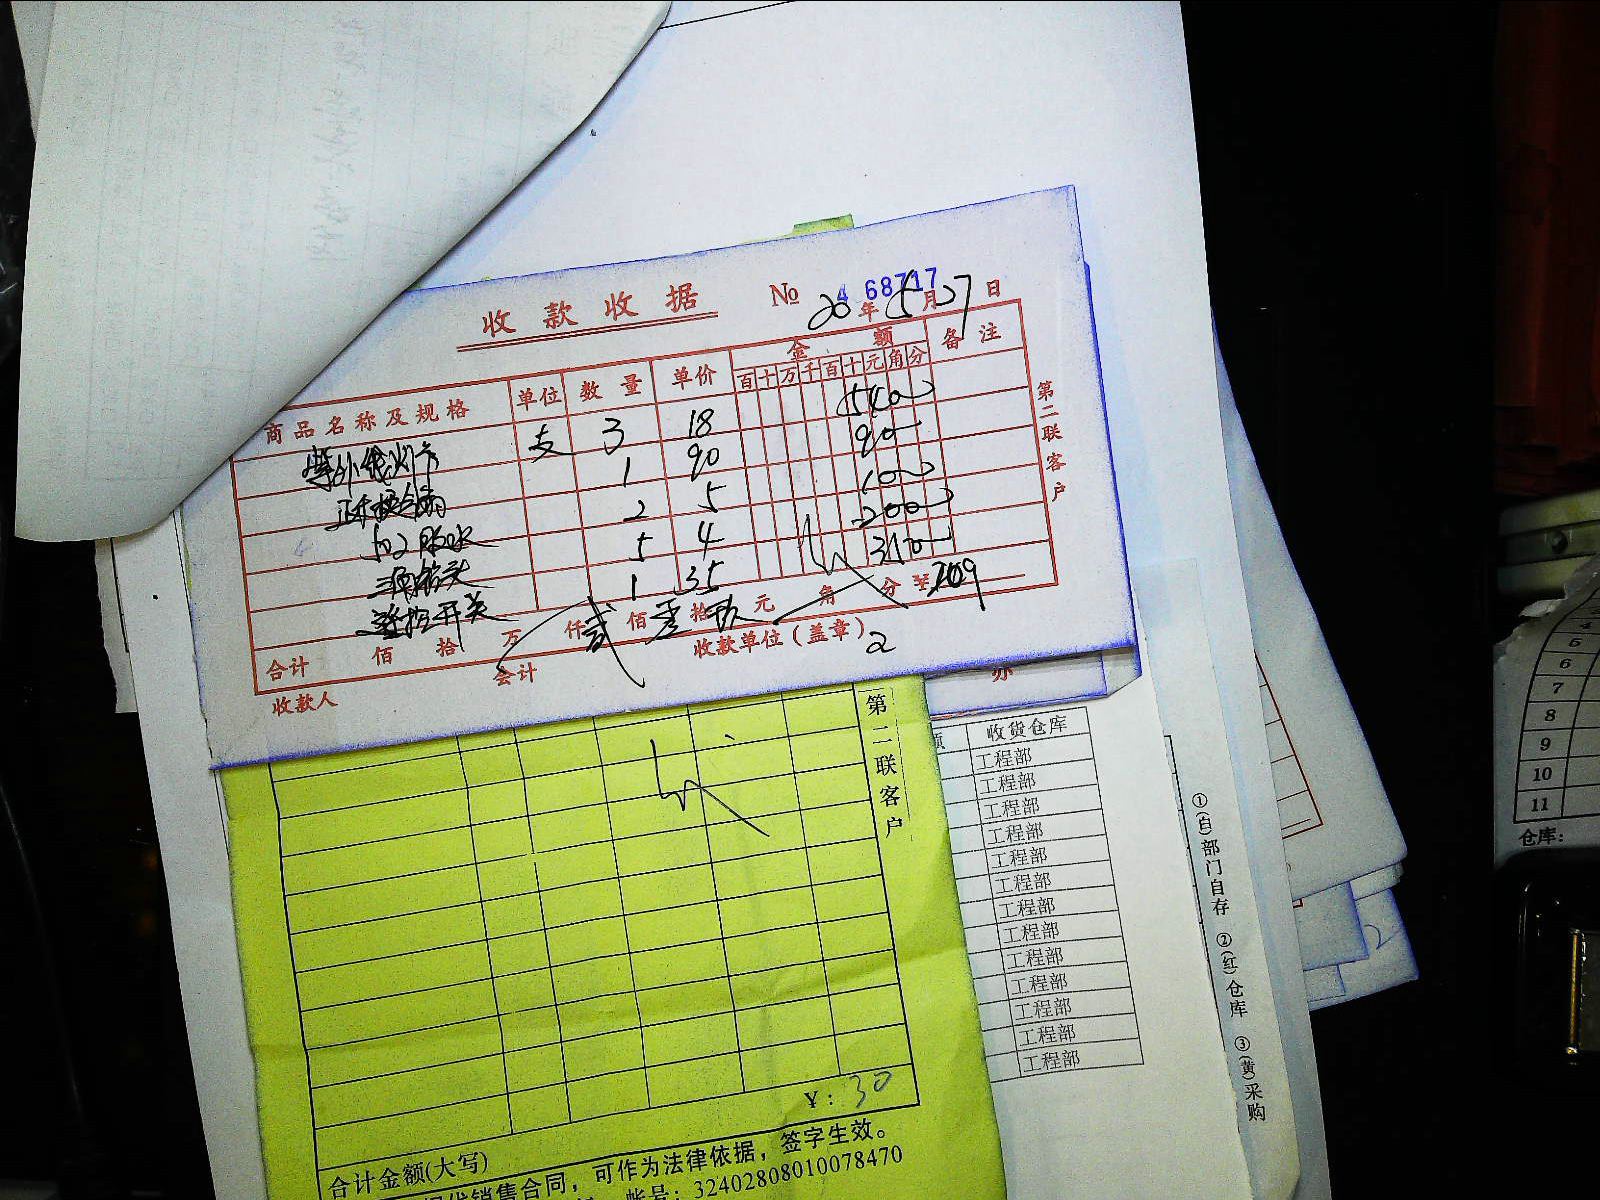 收款收据 № 468717
20年5月27日
商品名称及规格 单位 数量 单价 金额 备注
百十万千百十元角分
支 3 18 540
1 90 90
102胶水 2 5 100
三角钻头 5 4 200
遥控开关 1 35
合计 佰 拾 万 仟 贰 佰 零 拾 玖 元 角 分 ¥209
收款人 会计 收款单位(盖章)
第二联客户
第二联客户
¥:30
合计金额(大写)
销售合同,可作为法律依据,签字生效。
帐号:32402808010078470
收货仓库
工程部
工程部
工程部
工程部
工程部
工程部
工程部
工程部
工程部
工程部
工程部
工程部
工程部
①(白)部门自存 ②(红)仓库 ③(黄)采购
4
5
6
7
8
9
10
11
仓库: